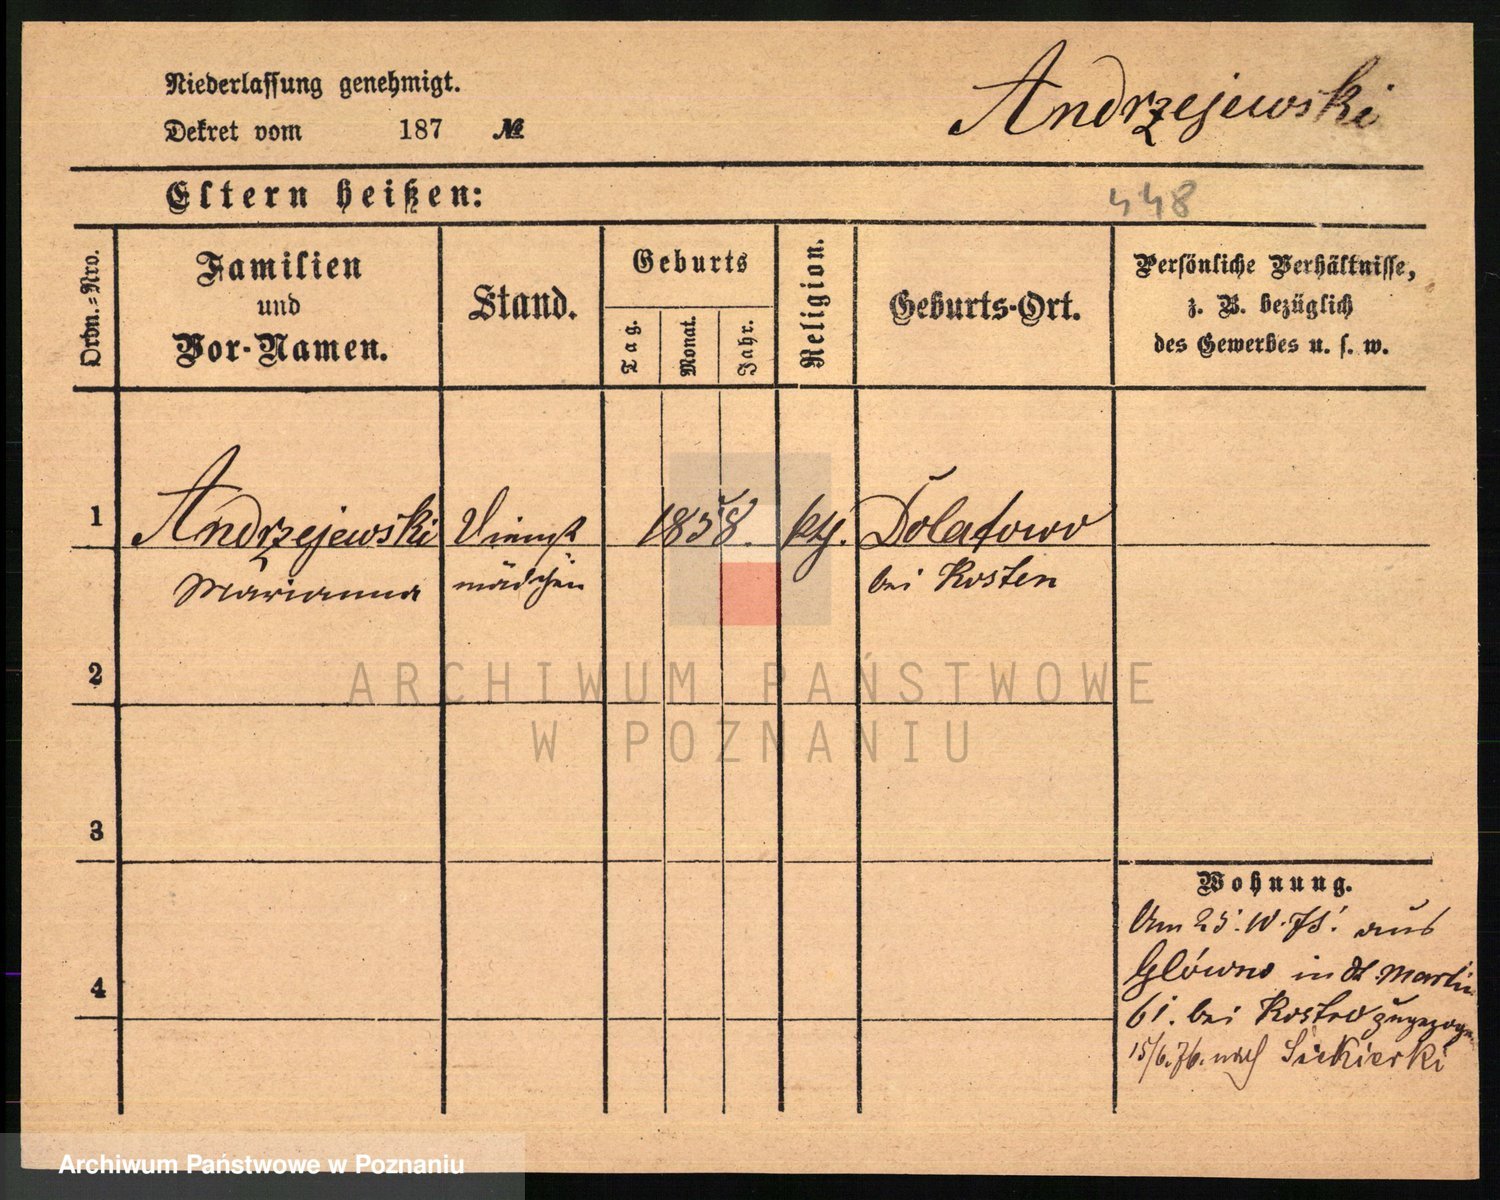 Andrzejewski
Niederlassung genehmigt.
Dekret vom 187 №
Eltern heißen:
448
Ordn.-Nro.
Familien
und
Vor-Namen.
Stand.
Geburts
Tag.
Monat.
Jahr.
Religion.
Geburts-Ort.
Persönliche Verhältnisse,
z. B. bezüglich
des Gewerbes u. s. w.
1 Andrzejewski Dienst 1858. kth. Dolatowo
Marianna mädchen bei Kosten
2
3
4
Wohnung.
Am 25. 10. 75. aus
Główno in St. Martin
61. bei Kostro zugezogen
15/6. 76. nach Siekierki
ARCHIWUM PAŃSTWOWE
W POZNANIU
Archiwum Państwowe w Poznaniu